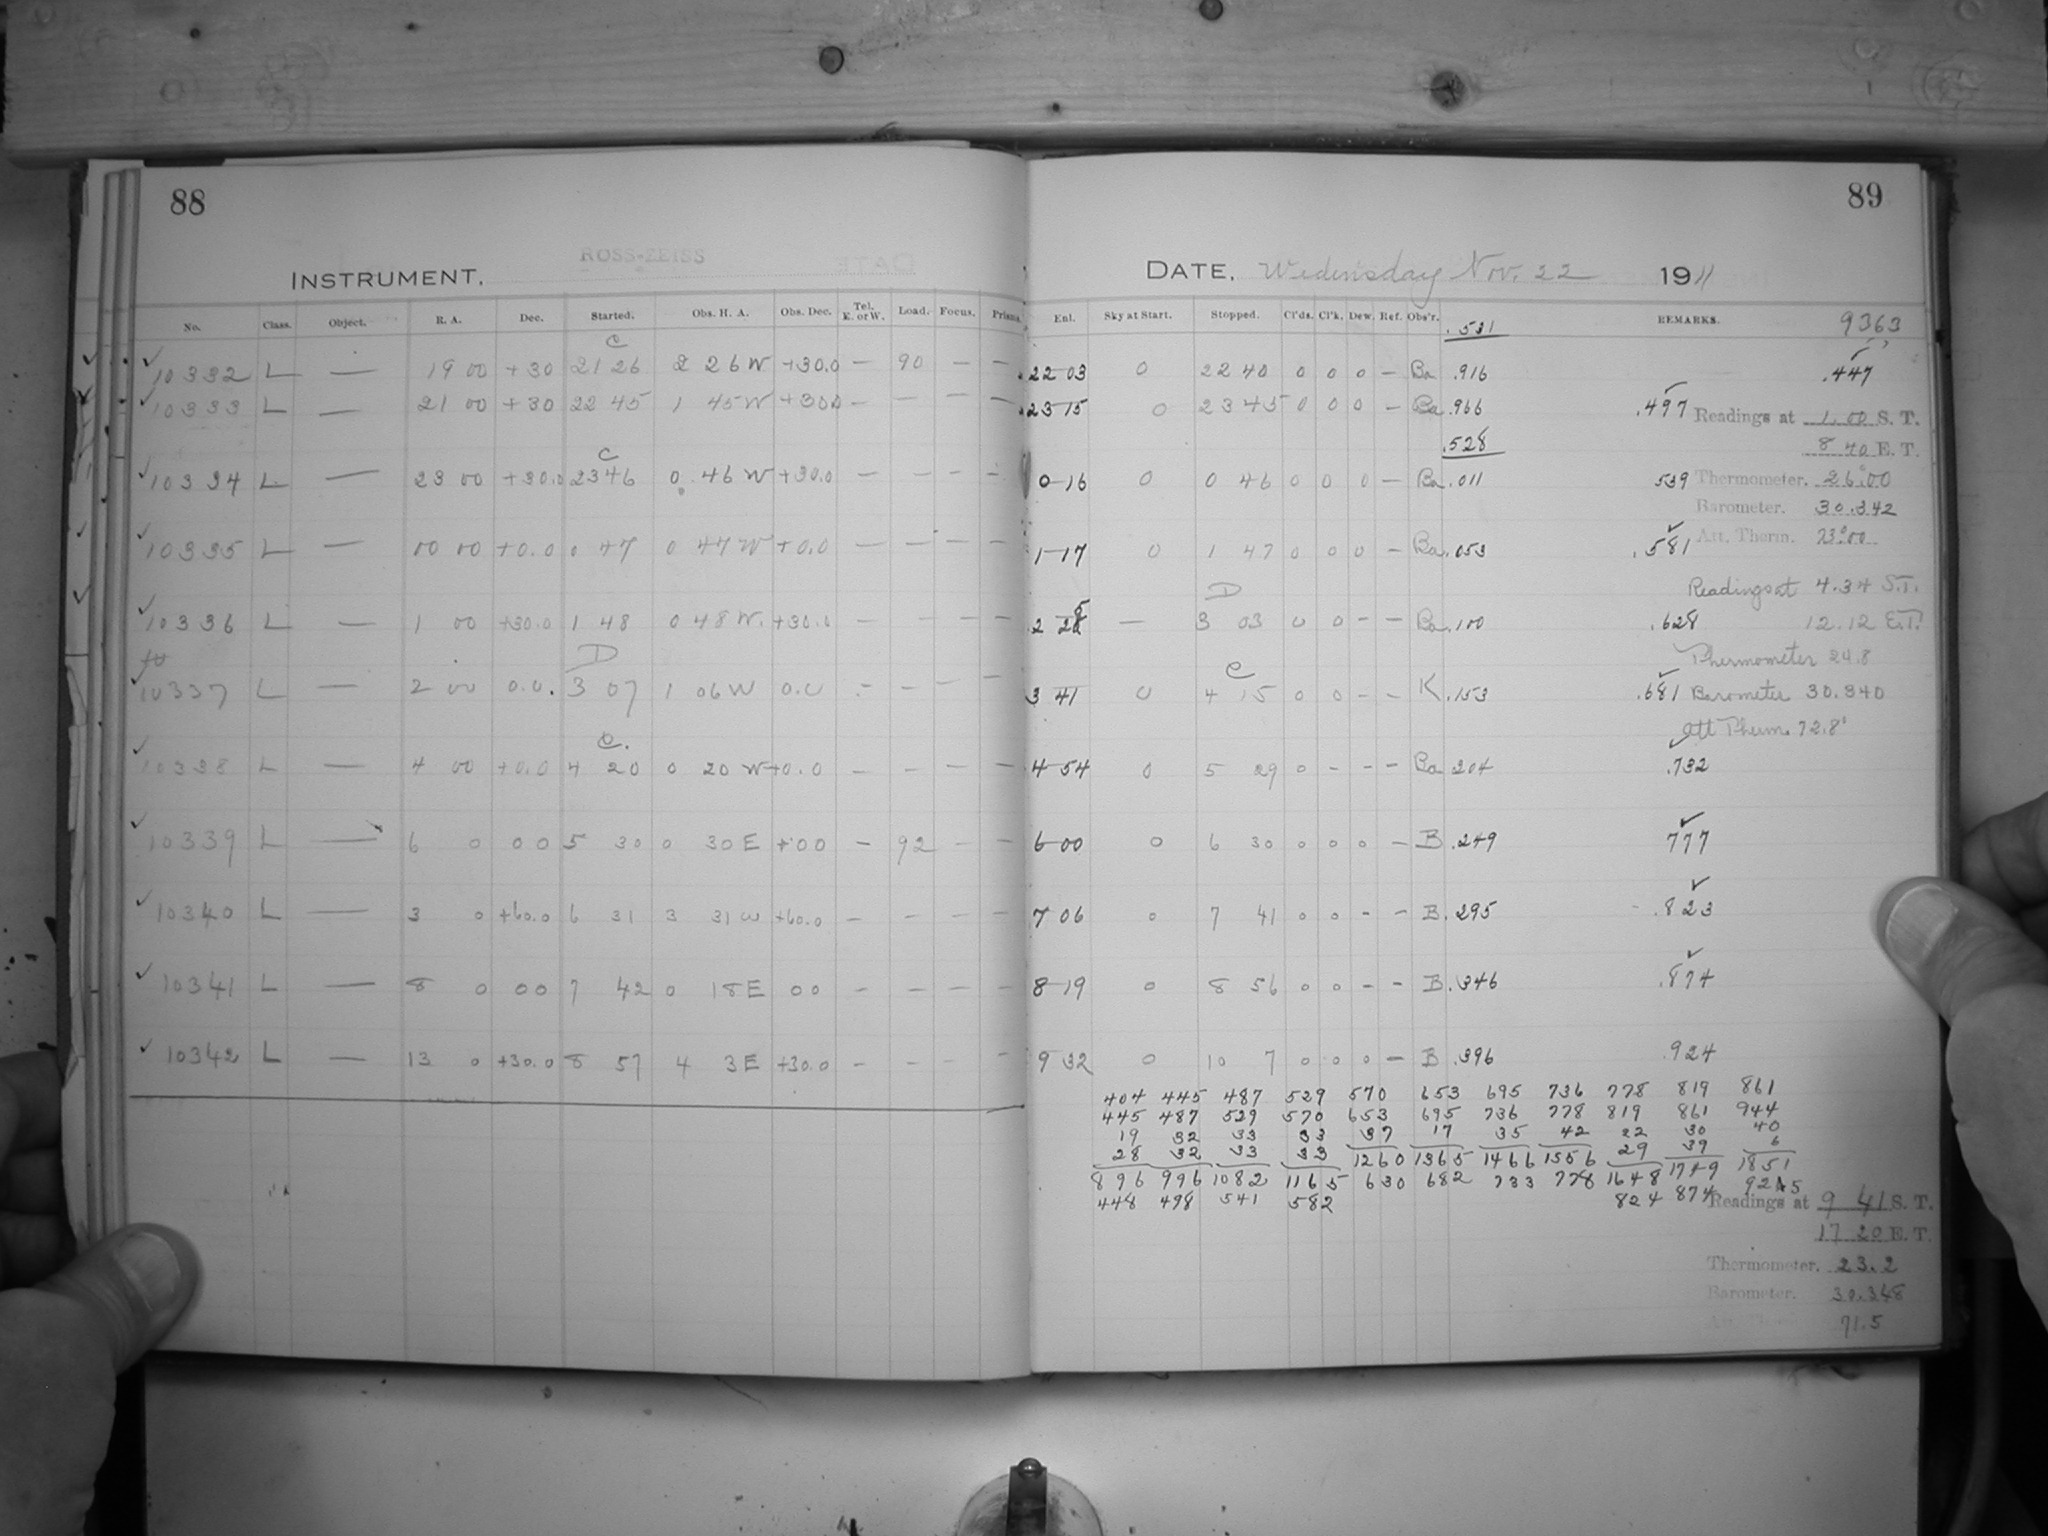 88
89
ROSS-ZEISS
INSTRUMENT.
DATE. Wednesday Nov. 22 1911
No. Class. Object. R. A. Dec. Started. Obs. H. A. Obs. Dec. Tel. E. or W. Load. Focus. Prisms. Enl. Sky at Start. Stopped. Cl'ds. Cl'k. Dew. Ref. Obs'r. REMARKS.
.531 9363
C
10332 L — 19 00 +30 21 26 2 26 W +30.0 — 90 — — 22 03 0 22 40 0 0 0 — Ba .916 .447
10333 L — 21 00 +30 22 45 1 45 W +30.0 — — — — 23 15 0 23 45 0 0 0 — Ba .966 .497 Readings at 1.00 S. T.
.528 8 70 E. T.
C
10334 L — 23 00 +30.0 23 46 0 46 W +30.0 — — — — 0 16 0 0 46 0 0 0 — Ba .011 539 Thermometer. 26.00
Barometer. 30.342
10335 L — 00 00 +0.0 0 47 0 47 W +0.0 — — — — 1 17 0 1 47 0 0 0 — Ba .053 .581 Att. Therm. 73.00
D Readings at 4.34 S.T.
10336 L — 1 00 +30.0 1 48 0 48 W. +30.0 — — — — 2 28 — 3 03 0 0 — — Ba .100 .628 12.12 E.T.
D C Thermometer 24.8
10337 L — 2 00 0.0. 3 07 1 06 W 0.0 — — — — 3 41 0 4 15 0 0 — — K .153 .681 Barometer 30.340
Att Therm. 72.8
C.
10338 L — 4 00 +0.0 4 20 0 20 W +0.0 — — — — 4 54 0 5 29 0 - - - Ba 204 .732
10339 L — 6 0 0 0 5 30 0 30 E +00 — 92 — — 6 00 0 6 30 0 0 0 — B .249 777
10340 L — 3 0 +60.0 6 31 3 31 W +60.0 — — — — 7 06 0 7 41 0 0 - - B .295 .823
10341 L — 8 0 0 0 7 42 0 18 E 0 0 — — — — 8 19 0 8 56 0 0 - - B .346 .874
10342 L — 13 0 +30.0 8 57 4 3 E +30.0 — — — — 9 32 0 10 7 0 0 0 — B .396 .924
404 445 487 529 570 653 695 736 778 819 861
445 487 529 570 653 695 736 778 819 861 944
19 32 33 33 37 17 35 42 22 30 40
28 32 33 33 1260 1365 1466 1556 29 39 6
896 996 1082 1165 630 682 733 778 1648 1749 1851
448 498 541 582 824 874 925
Readings at 9 41 S. T.
17 20 E. T.
Thermometer. 23.2
Barometer. 30.348
Att. Therm. 71.5